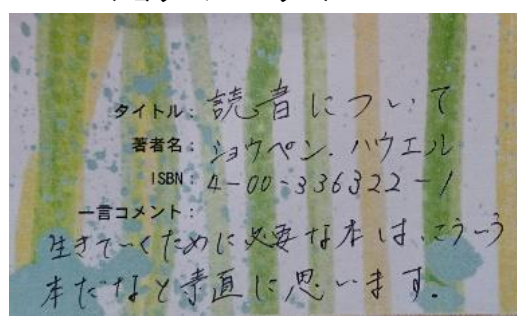 タイトル: 読書について
著者名: ショウペン.ハウエル
ISBN: 4-00-336322-1
一言コメント:
生きていくために必要な本は、こういう
本だなと素直に思います。